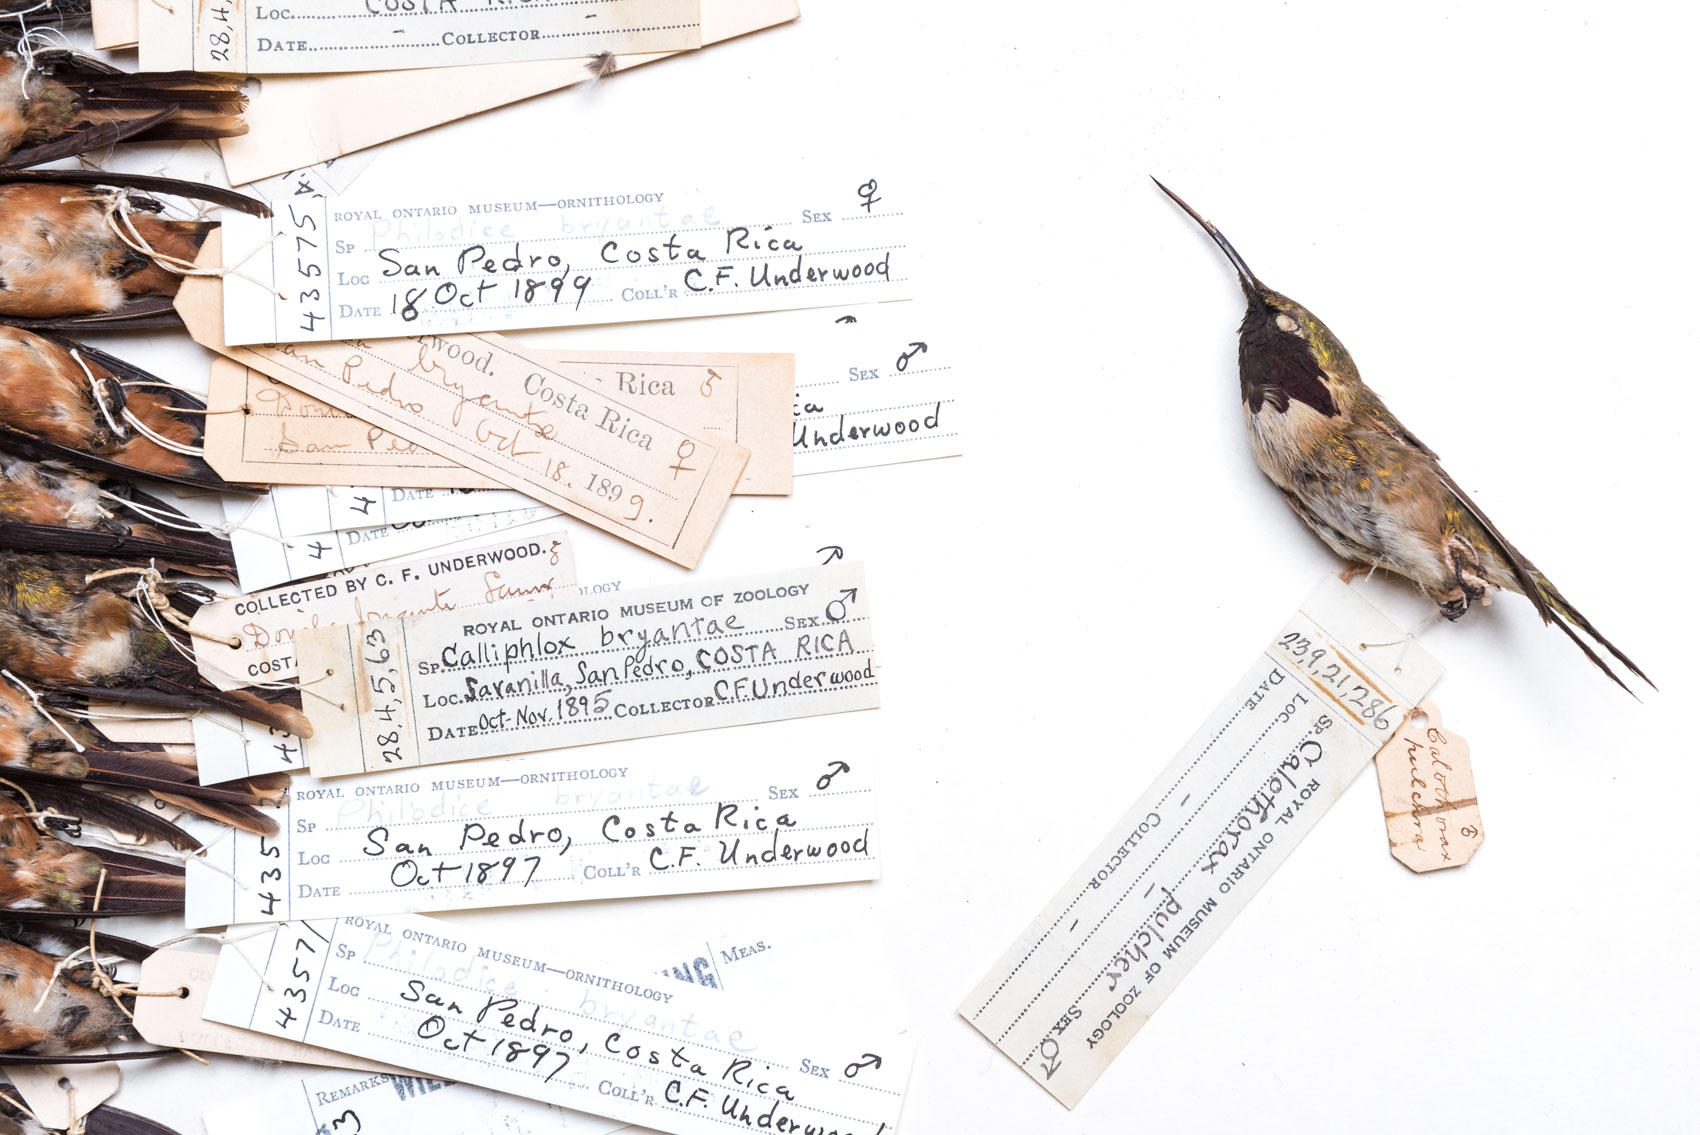 Loc. COSTA RICA
28,4,
DATE - COLLECTOR -
43575
ROYAL ONTARIO MUSEUM—ORNITHOLOGY
SP Philodice bryantae SEX ♀
LOC San Pedro, Costa Rica
DATE 18 Oct 1899 COLL'R C.F. Underwood
SEX ♂
Underwood
Rica
San
wood. Costa Rica
bryantae ♀
San Pedro Oct 18. 1899.
4 DATE
4 DATE
COLLECTED BY C. F. UNDERWOOD.
COSTA
♂
28.4.5.63
ROYAL ONTARIO MUSEUM OF ZOOLOGY
SP. Calliphlox bryantae SEX. ♂
LOC. Savanilla, San Pedro, COSTA RICA
DATE Oct-Nov. 1895 COLLECTOR C.F. Underwood
43
435
ROYAL ONTARIO MUSEUM—ORNITHOLOGY
SP Philodice bryantae SEX ♂
LOC San Pedro, Costa Rica
DATE Oct 1897 COLL'R C.F. Underwood
4357
ROYAL ONTARIO MUSEUM—ORNITHOLOGY
SP Philodice bryantae SEX ♂
LOC San Pedro, Costa Rica
DATE Oct 1897 COLL'R C.F. Underwood
MEAS.
REMARKS
3
23,9,21,286
ROYAL ONTARIO MUSEUM OF ZOOLOGY
SP. Calothorax pulcher SEX. ♂
LOC. - -
DATE - COLLECTOR -
Calothorax
pulchra
♂